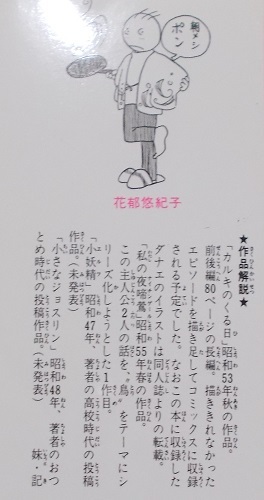 朝メシ
ポン
花郁悠紀子
★作品解説★
「カルキのくる日」昭和53年秋の作品。
前後編80ページの長編。描ききれなかった
エピソードを描き足してコミックスに収録
される予定でした。なおこの本に収録した
ダナエのイラストは同人誌よりの転載。
「私の夜啼鶯」昭和55年春の作品。
この主人公2人の話を、〝鳥〟をテーマにシ
リーズ化しようとした1作目。
「小妖精」昭和47年、著者の高校時代の投稿
作品。(未発表)
「小さなジョスリン」昭和48年、著者のおつ
とめ時代の投稿作品。(未発表)
妹・記